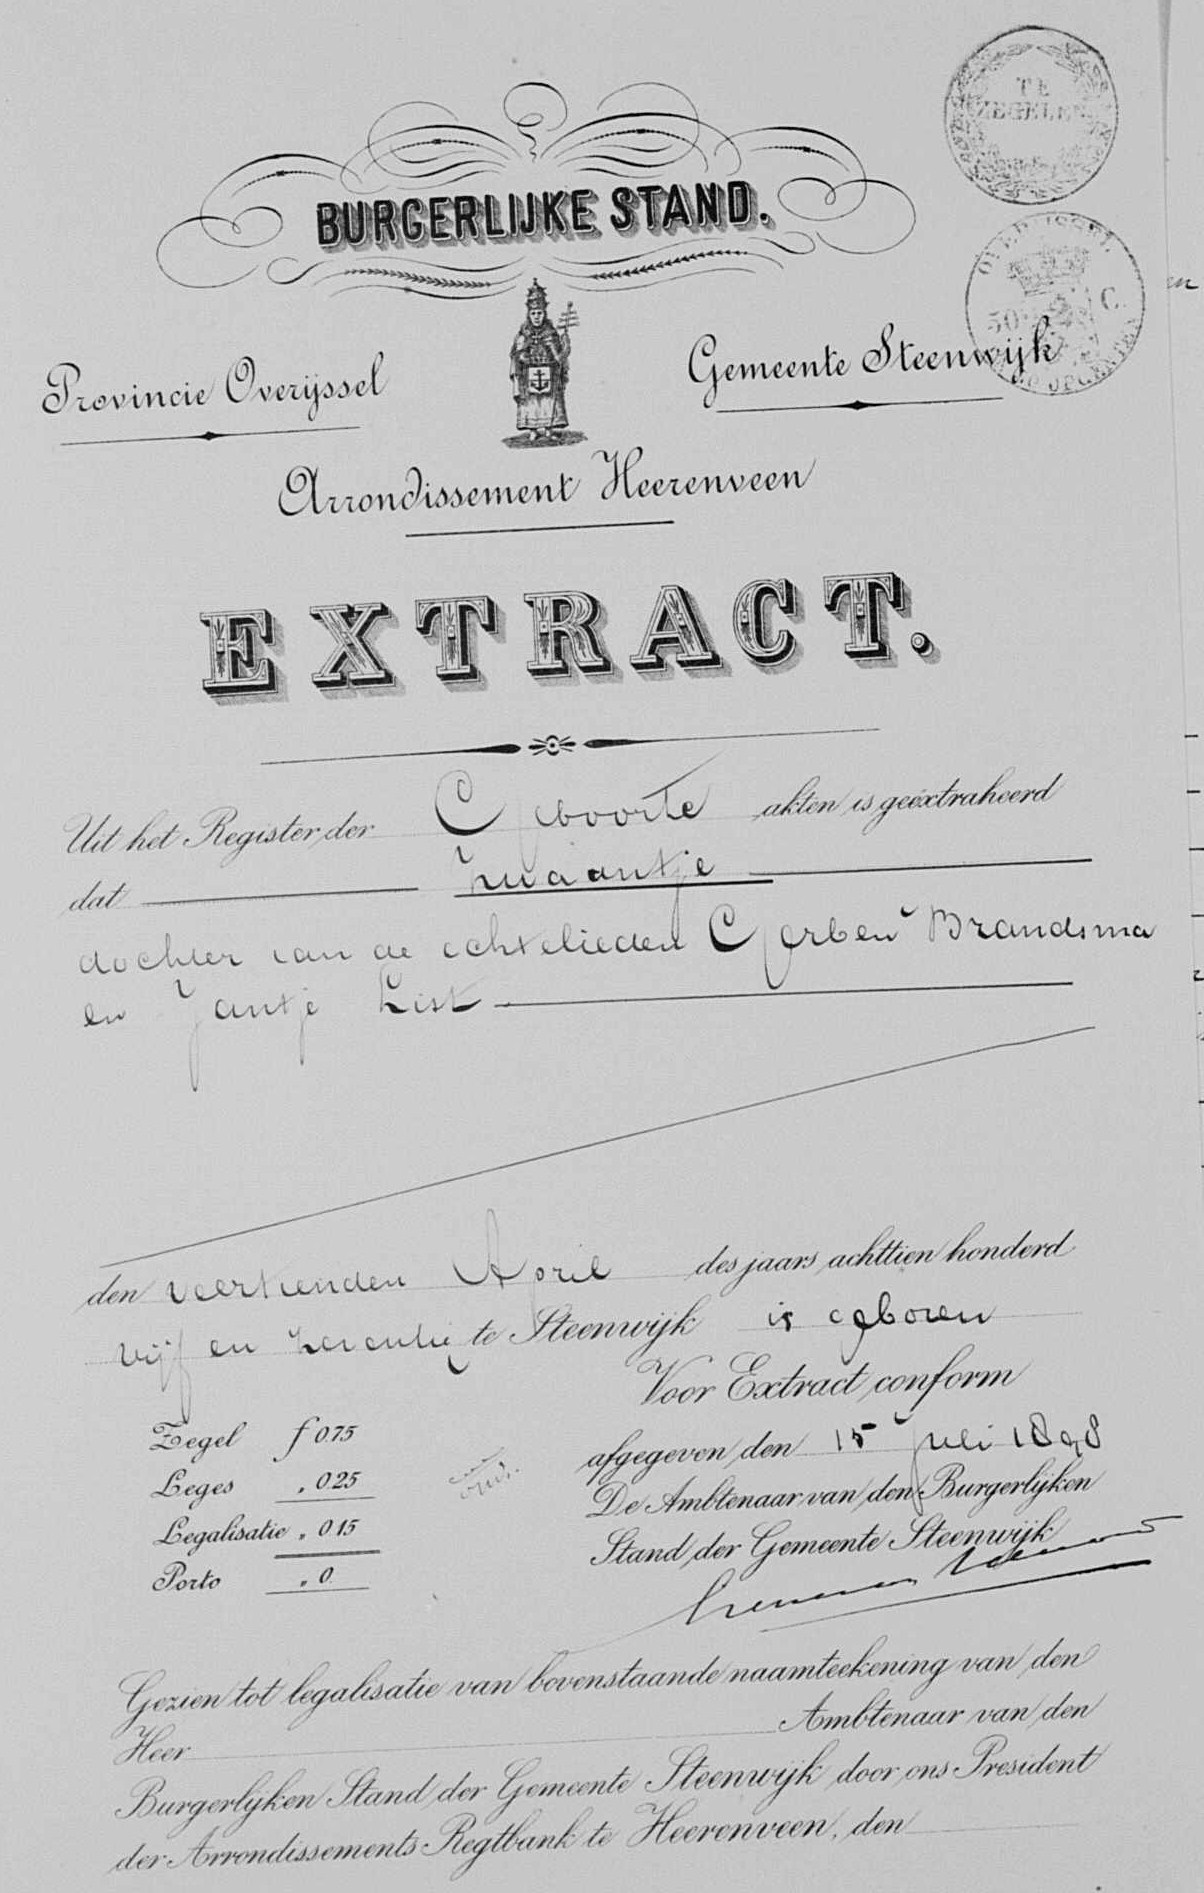 BURGERLIJKE STAND.
OVERIJSSEL
50 C.
OPCENTEN
Provincie Overijssel
Gemeente Steenwijk
Arrondissement Heerenveen
EXTRACT.
Uit het Register der Geboorte akten is geëxtraheerd
dat Zwaantje
dochter van de echtelieden Gerben Brandsma
en Jantje List
den veertienden April des jaars achttien honderd
vijf en zeventig te Steenwijk is geboren
Voor Extract conform
Zegel f 0.75
Leges „ 025
Legalisatie „ 015
Porto „ 0
afgegeven den 15 Juli 1898
De Ambtenaar van den Burgerlijken
Stand der Gemeente Steenwijk
Gezien tot legalisatie van bovenstaande naamteekening van den
Heer Ambtenaar van den
Burgerlijken Stand der Gemeente Steenwijk door ons President
der Arrondissements Regtbank te Heerenveen, den